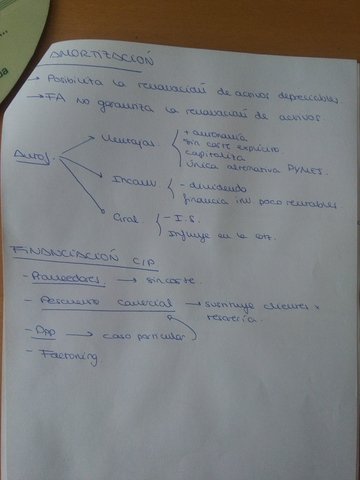 AMORTIZACIÓN
→ Posibilita la renovación de activos depreciables
→ FA no garantiza la renovación de activos
Autof.
Ventajas
+ autonomía
sin coste explícito
capitaliza
única alternativa PYMES.
Inconv
- dividendo
financia inv. poco rentables.
Gral.
- I.S.
Influye en la
FINANCIACIÓN C/P
- Proveedores → sin coste.
- Descuento comercial → sustituye clientes x
tesorería.
- Dpp → caso particular
- Factoring